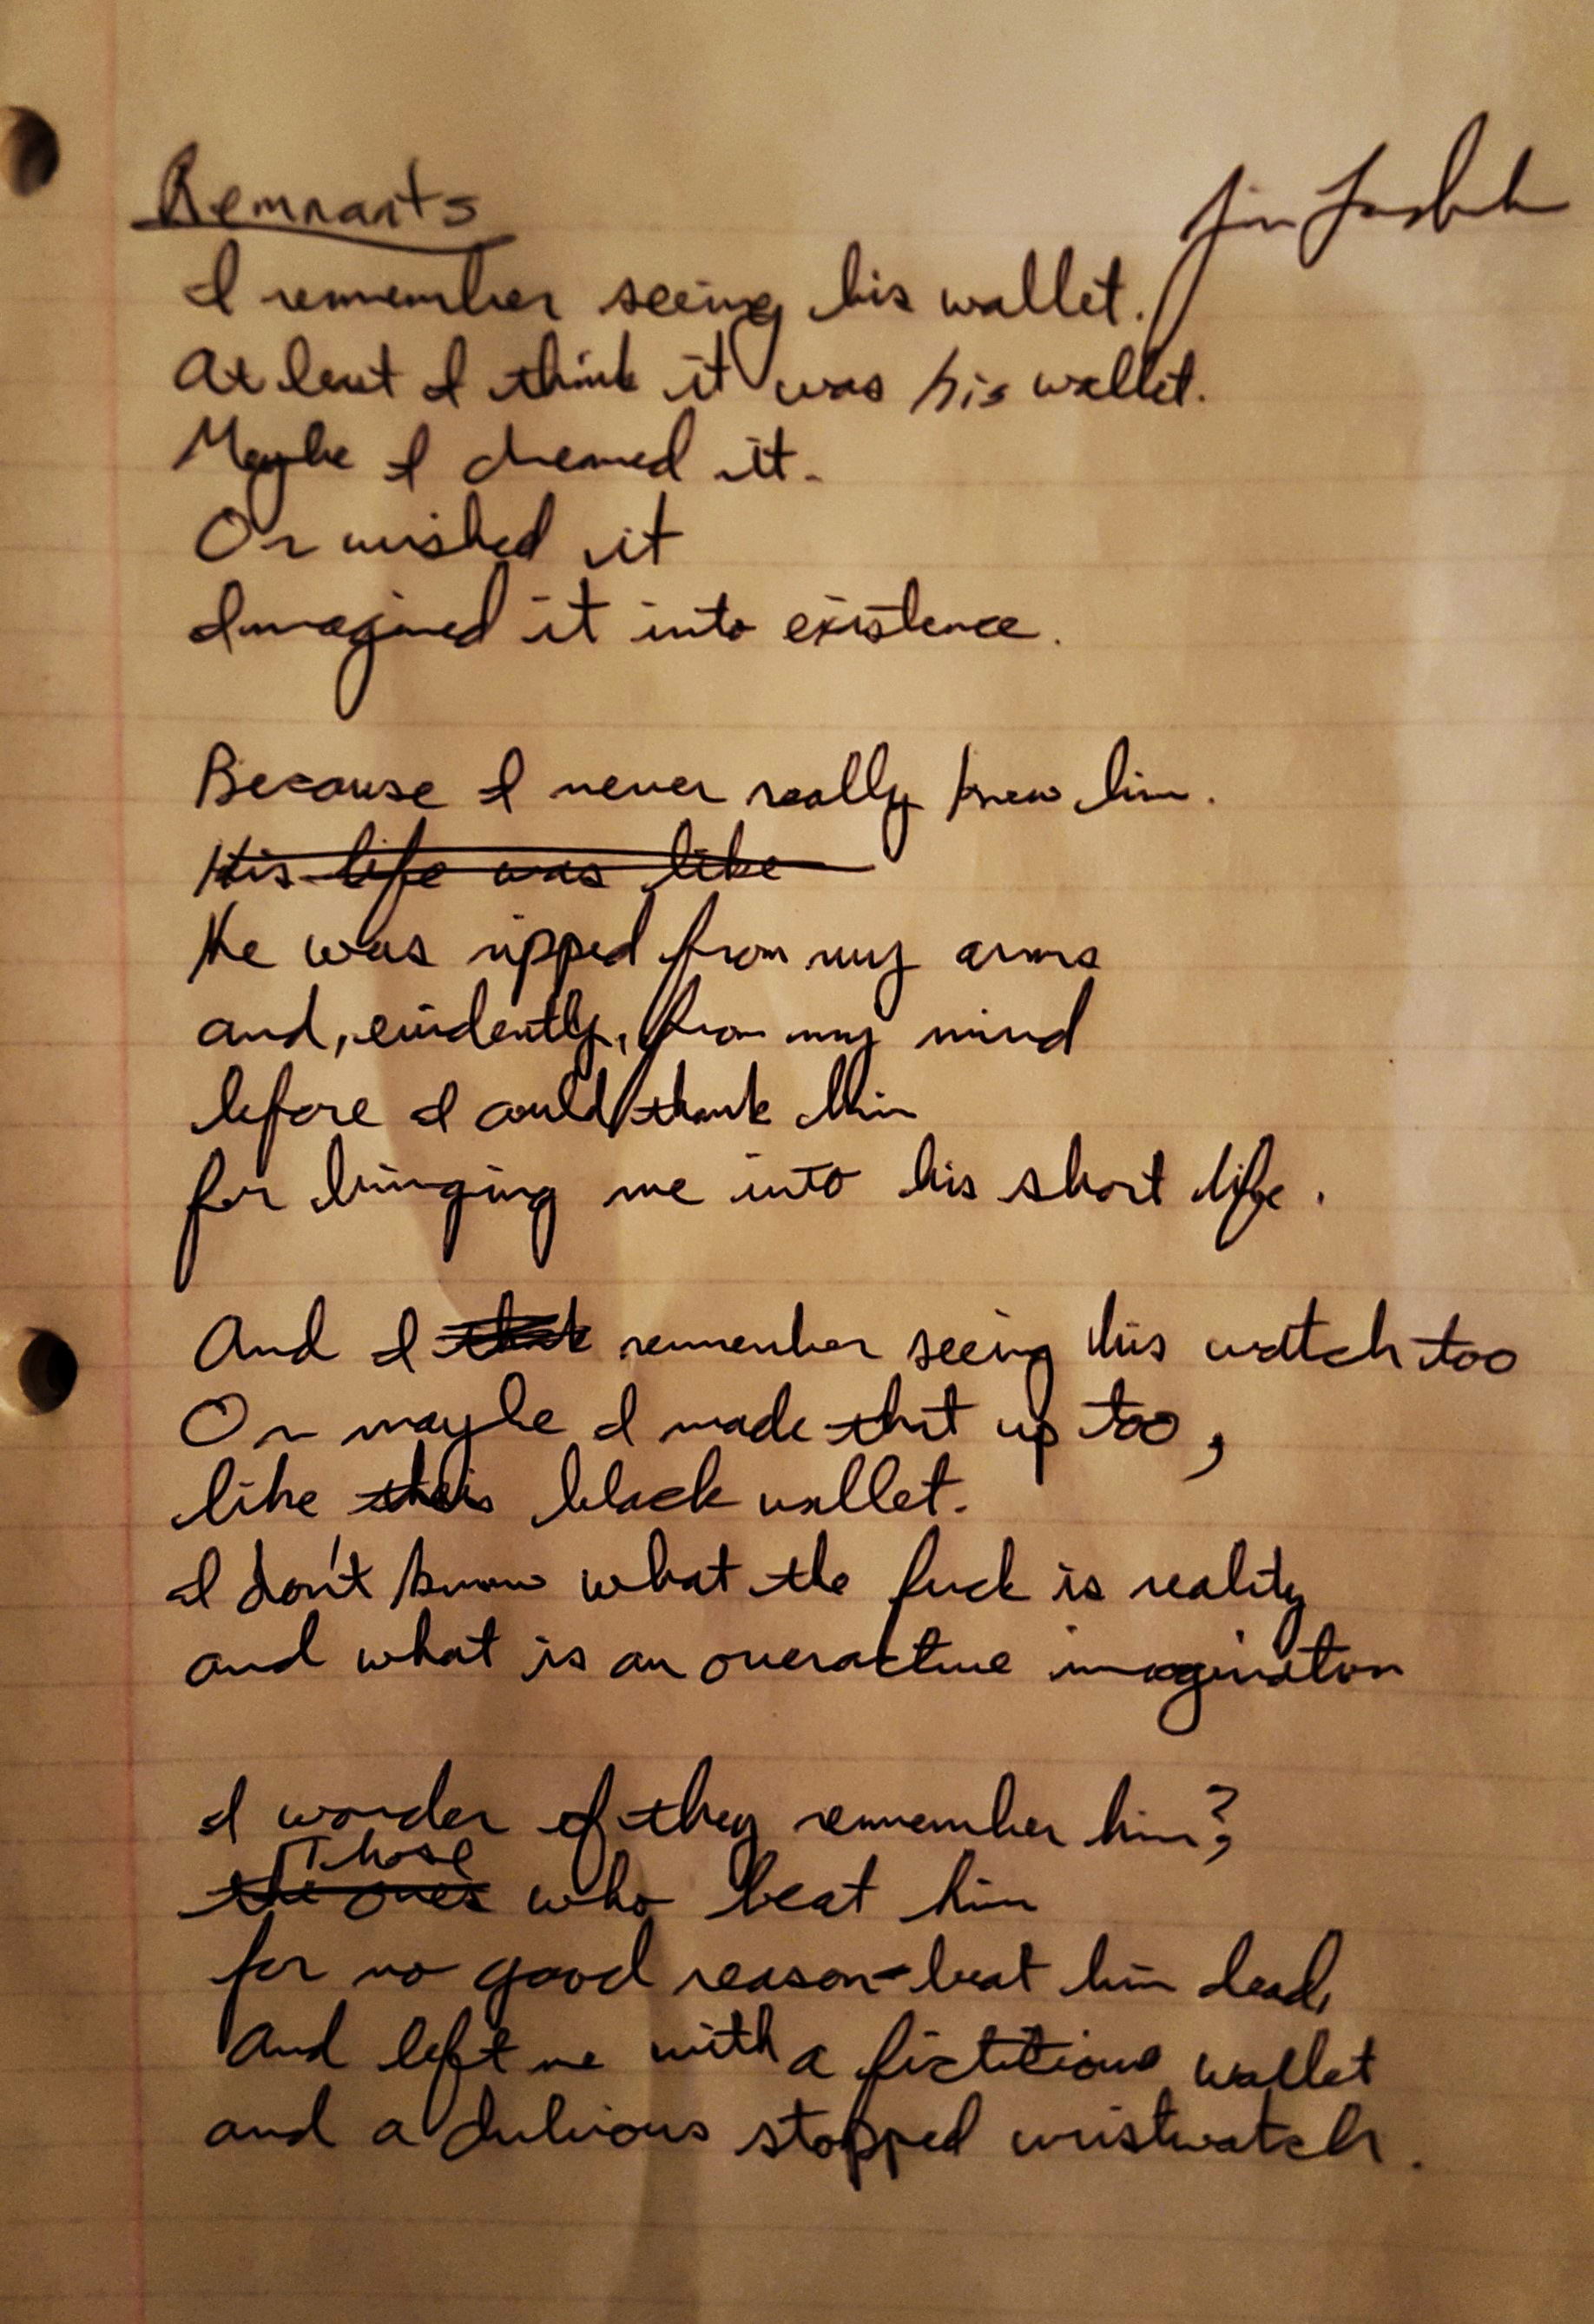 Remnants
I remember seeing his wallet.
At least I think it was his wallet.
Maybe I dreamed it.
Or wished it
Imagined it into existence.
Because I never really knew him.
His life was like
He was ripped from my arms
and, evidently, from my mind
before I could thank him
for bringing me into his short life.
And I think remember seeing his watch too
Or maybe I made that up too,
like this black wallet.
I don't know what the fuck is reality
and what is an overactive imagination
I wonder if they remember him?
Those
the ones who beat him
for no good reason-beat him dead,
And left me with a fictitious wallet
and a dubious stopped wristwatch.